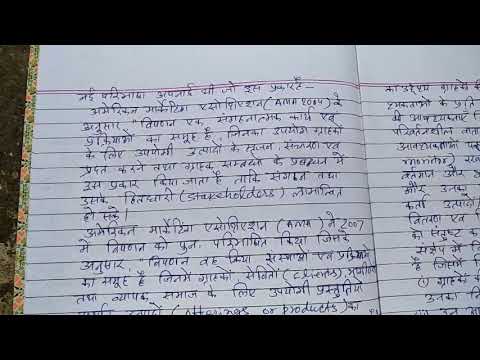 नई परिभाषा अपनाई थी जो इस प्रकार है –
अमेरिकन मार्केटिंग एसोशिएशन (AMA 2004) के
अनुसार, "विपणन एक संगठनात्मक कार्य एवं
प्रक्रियाओं का समूह है, जिनका उपयोग ग्राहकों
के लिए उपयोगी उत्पादों के सृजन, संचारण एवं
प्रदत्त करने तथा ग्राहक सम्बन्धों के प्रबन्धन में
इस प्रकार किया जाता है ताकि संगठन तथा
उसके हितधारी (stakeholders) लाभान्वित
हो सकें।
अमेरिकन मार्केटिंग एसोशिएशन (AMA) ने 2007
में विपणन को पुनः परिभाषित किया जिसके
अनुसार, "विपणन वह क्रिया संस्थाओं एवं प्रक्रियाओं
का समूह है जिनमें ग्राहकों सेवितों (clients),
तथा व्यापक समाज के लिए उपयोगी प्रस्तुतियों
(offerings or products) का
का उद्देश्य ग्राहकों की
के प्रति
परिवर्तनशील
वर्तमान और
और उनको
कर्ता उत्पादों
वितरण एवं
को संतुष्ट
संक्षेप में
है जिसमें
① ग्राहकों के
उनका